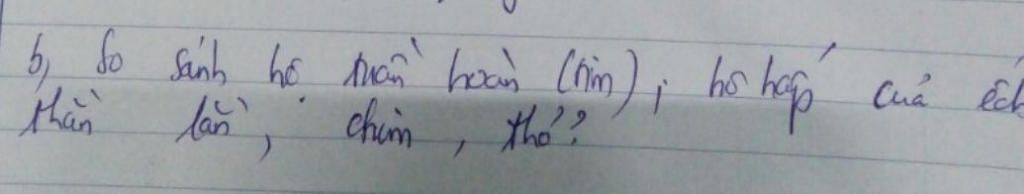 b, So sánh hệ tuần hoàn (tim), hô hấp của ếch
thằn lằn, chim, thỏ?